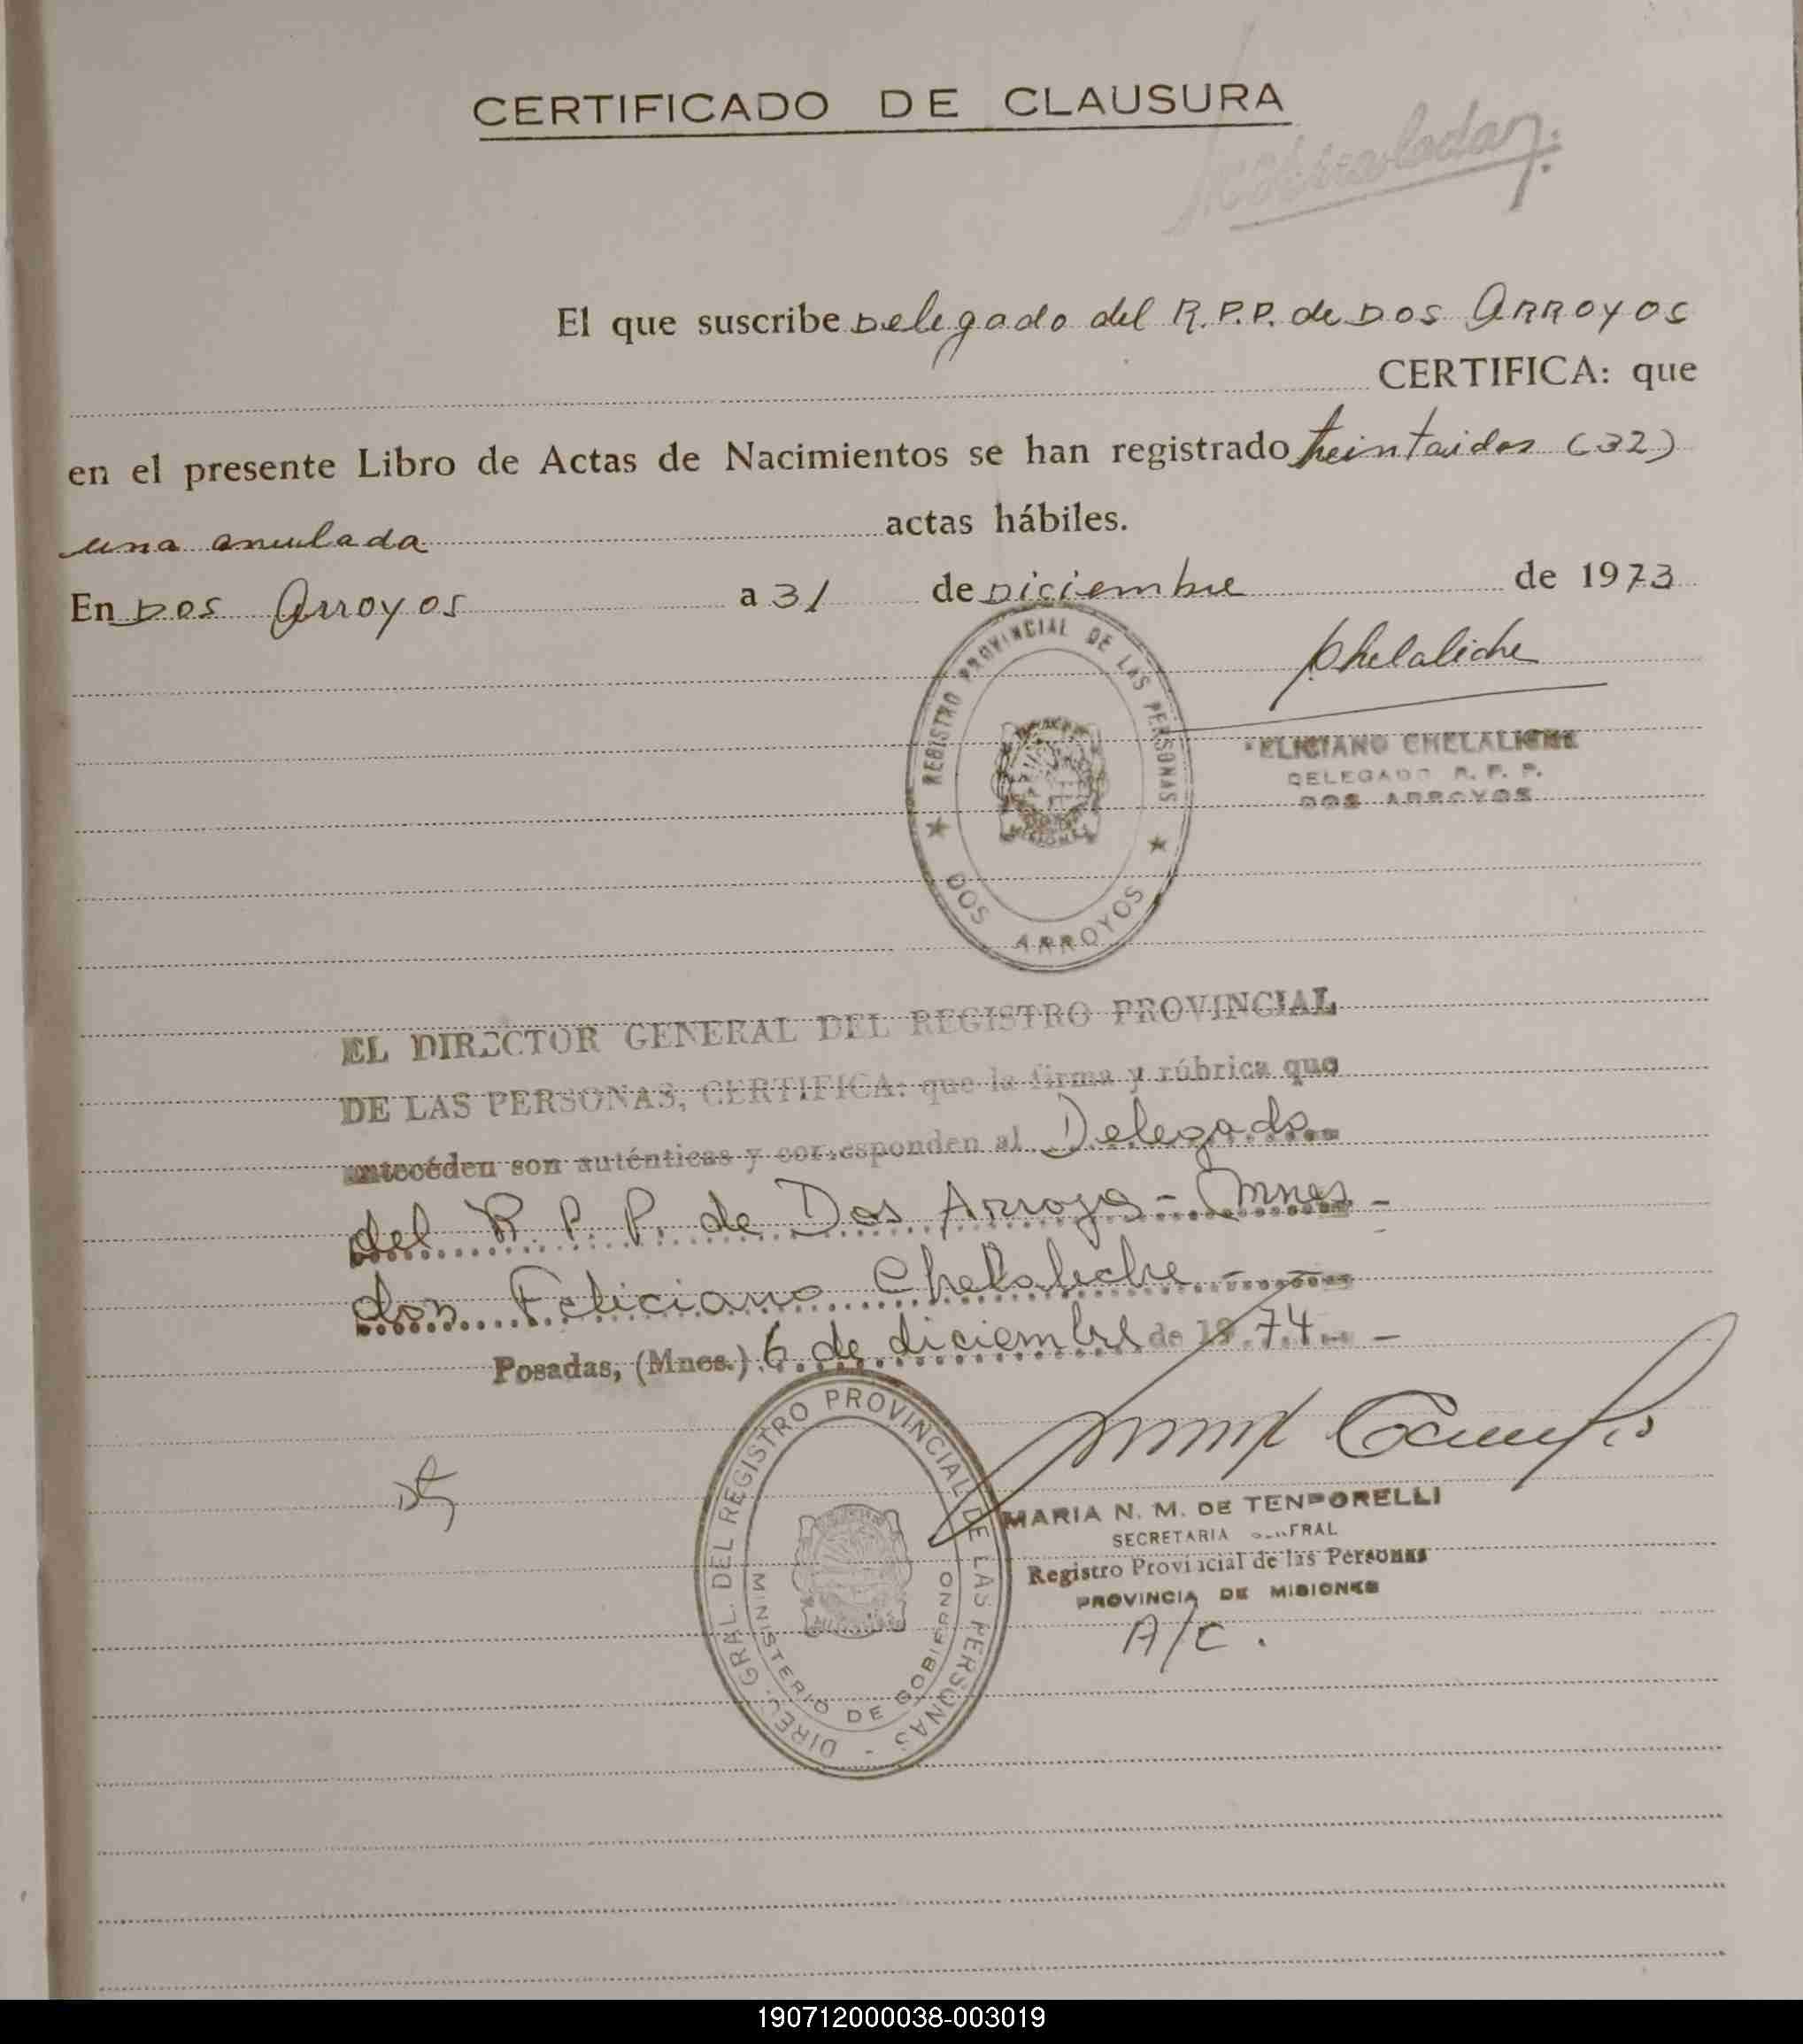 CERTIFICADO DE CLAUSURA
El que suscribe Delegado del R.P.P. de Dos Arroyos
CERTIFICA: que
en el presente Libro de Actas de Nacimientos se han registrado treintaidos (32)
una anulada actas hábiles.
En Dos Arroyos a 31 de Diciembre de 1973
REGISTRO PROVINCIAL DE LAS PERSONAS
DOS ARROYOS
Chelaliche
FELICIANO CHELALICHE
DELEGADO R. P. P.
DOS ARROYOS
EL DIRECTOR GENERAL DEL REGISTRO PROVINCIAL
DE LAS PERSONAS, CERTIFICA: que la firma y rúbrica que
anteceden son auténticas y corresponden al Delegado
del R. P. P. de Dos Arroyos - Mnes -
don Feliciano Chelaliche - -
Posadas, (Mnes.) 6 de diciembre de 1974 -
DIREC. GRAL. DEL REGISTRO PROVINCIAL DE LAS PERSONAS -
MINISTERIO DE GOBIERNO
MISIONES
MARIA N. M. DE TEMPORELLI
SECRETARIA GENERAL
Registro Provincial de las Personas
PROVINCIA DE MISIONES
A/C.
190712000038-003019